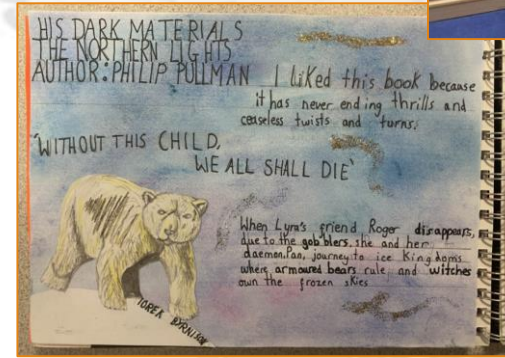 HIS DARK MATERIALS
THE NORTHERN LIGHTS
AUTHOR: PHILIP PULLMAN
I liked this book because
it has never ending thrills and
ceaseless twists and turns.
'WITHOUT THIS CHILD,
WE ALL SHALL DIE'
When Lyra's friend Roger disappears,
due to the gobblers, she and her
daemon, Pan, journey to ice Kingdoms
where armoured bears rule and witches
own the frozen skies
IOREK BYRNISON